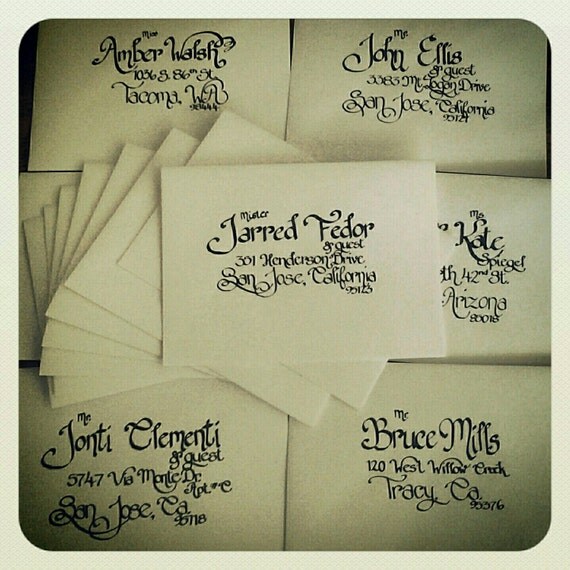 Miss
Amber Walsh
1036 S. 86th St.
Tacoma, WA
98444
Mr.
John Ellis
& guest
3383 Mt. Logan Drive
San Jose, California
95127
Mister
Jarred Fedor
& guest
301 Henderson Drive
San Jose, California
95123
Ms.
Kate
Spiegel
42nd St.
Arizona
85018
Mr.
Jonti Clementi
& guest
5747 Via Monte Dr.
Apt. C
San Jose, Ca.
95118
Mr.
Bruce Mills
120 West Willow Creek
Tracy, Ca.
95376